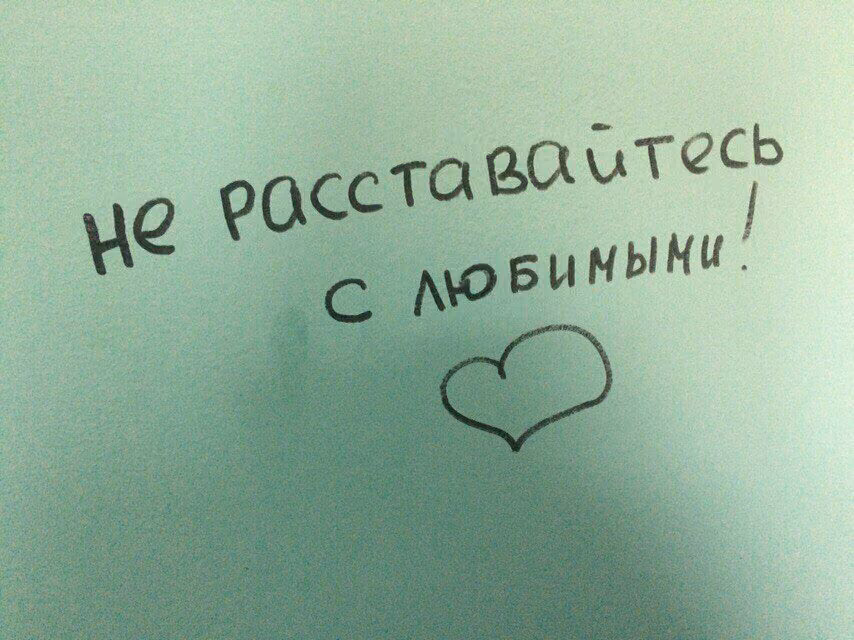 не расставайтесь
с любимыми!